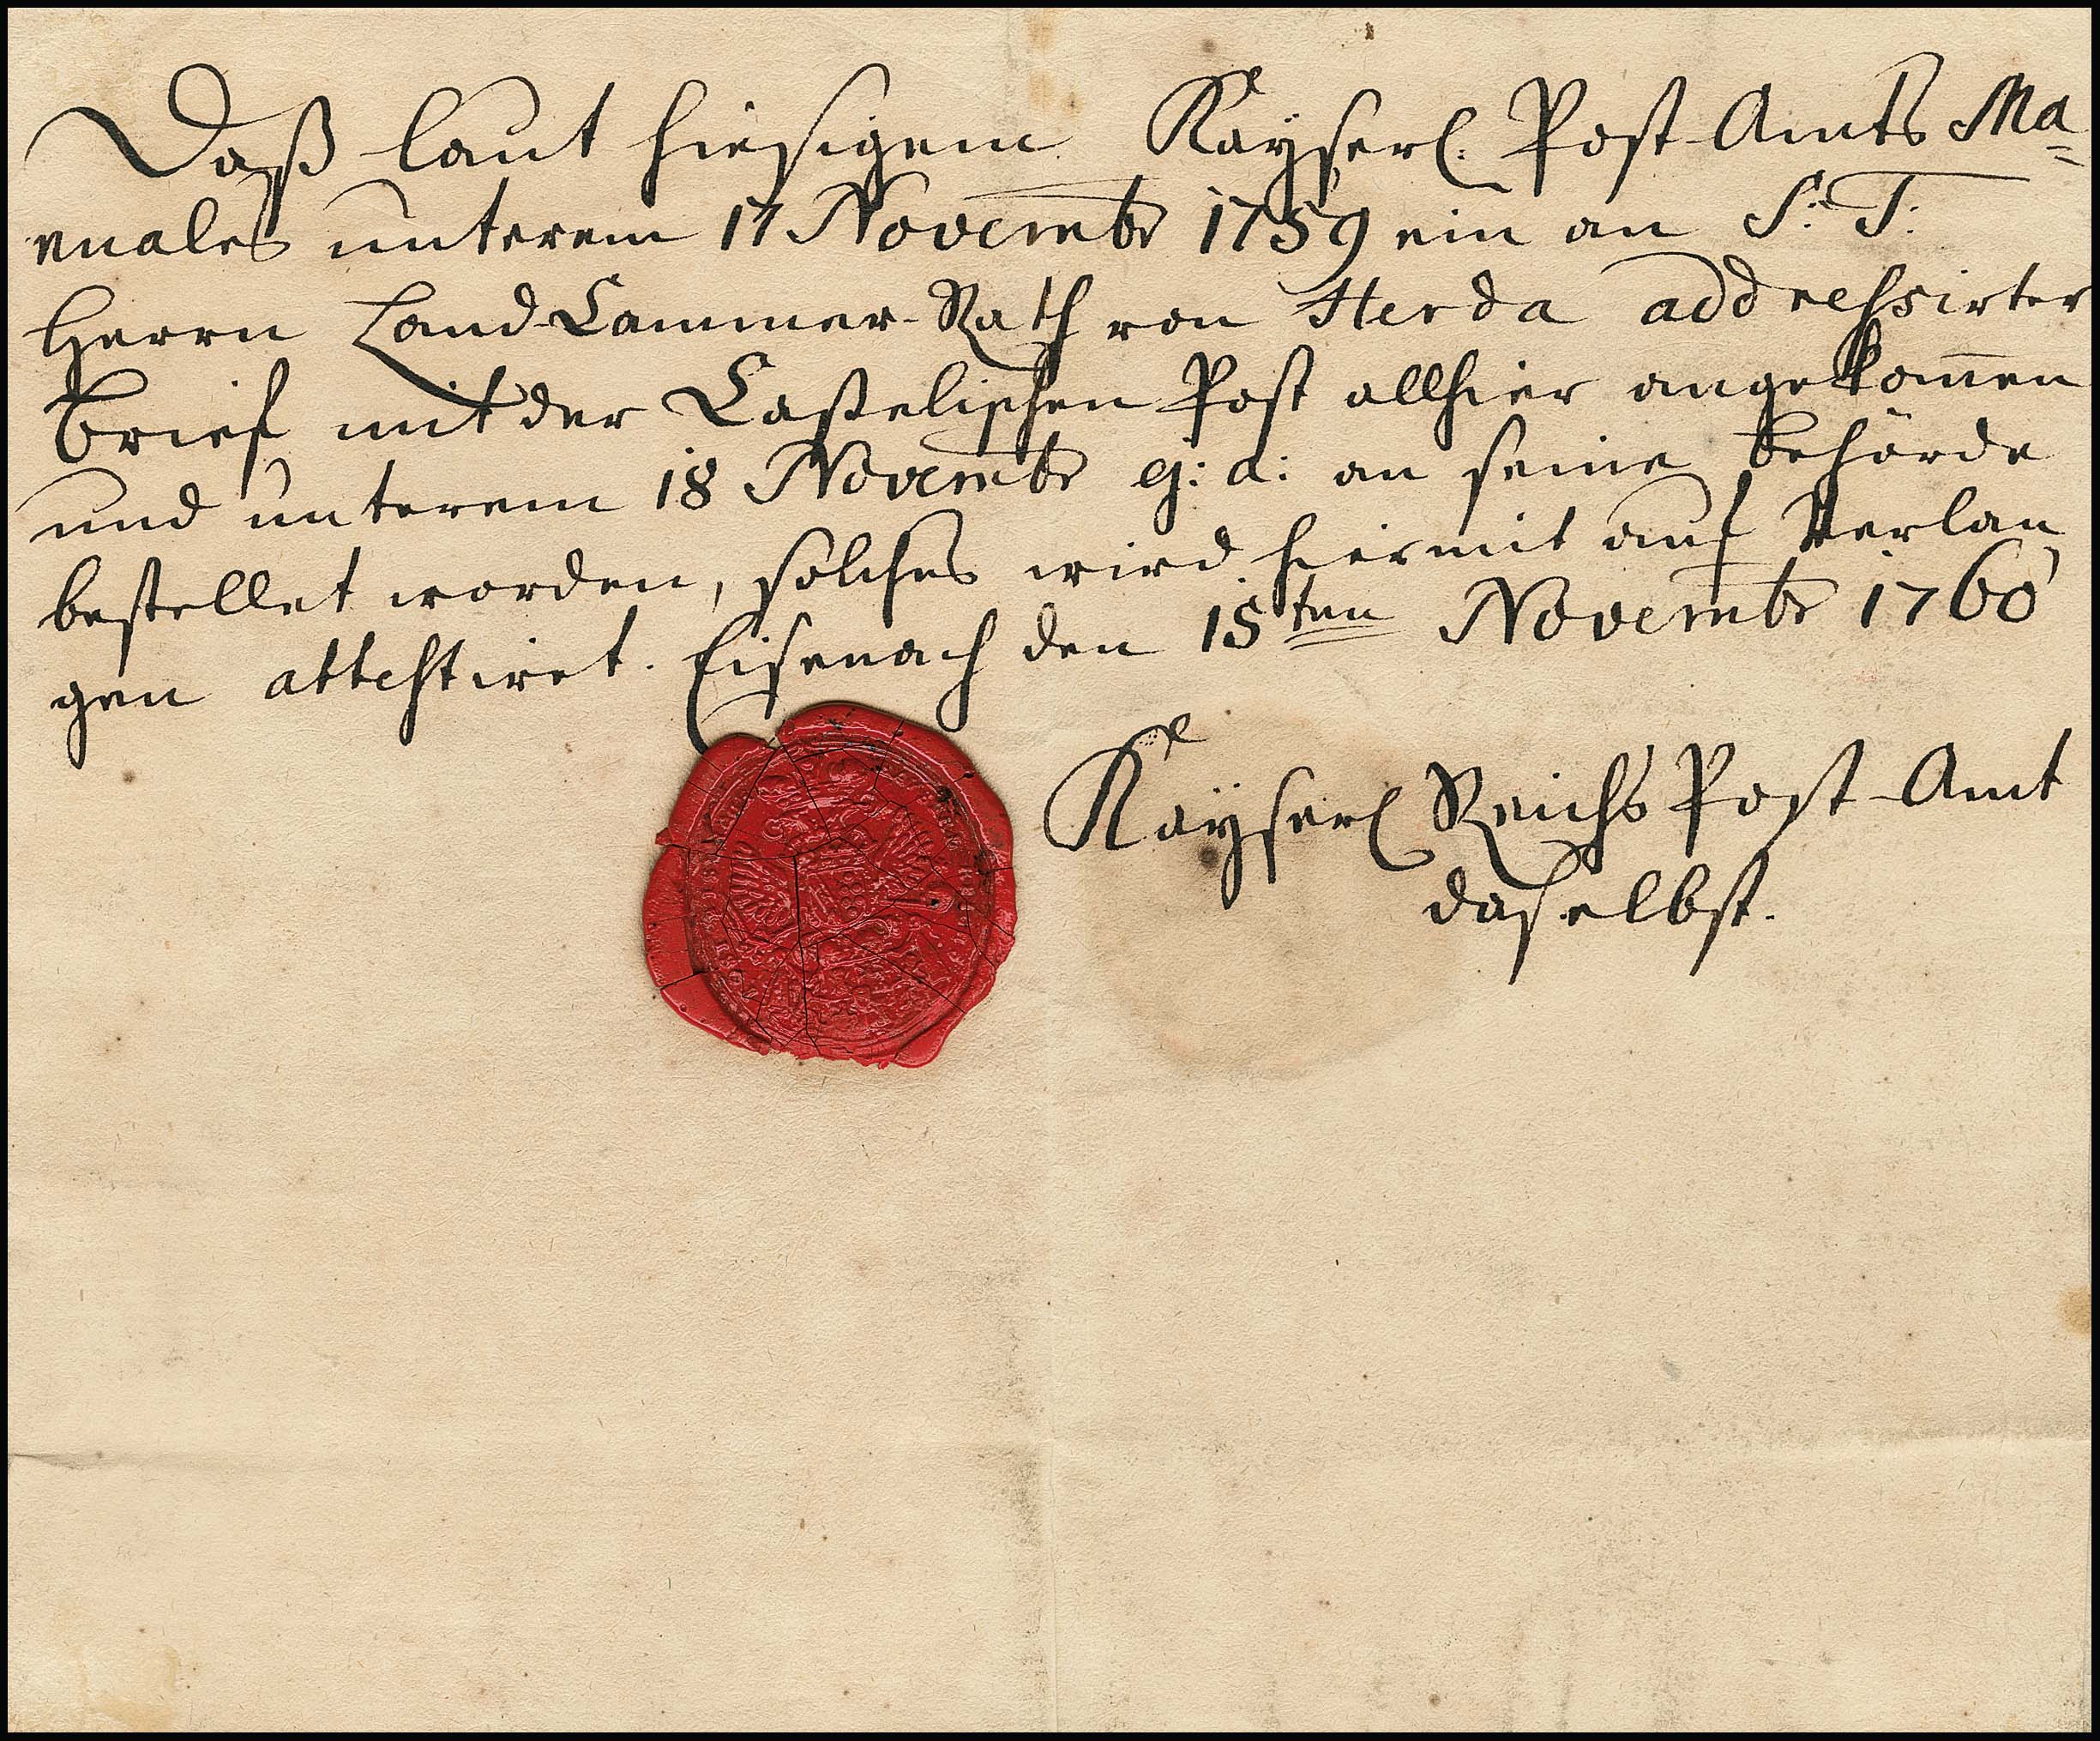 Daß laut hiesigem Kayserl. Post-Amts Ma=
nuales unterem 17 Novembr 1759 ein an S: T:
Herrn Land-Cammer-Rath von Herda addressirter
brief mit der Caßelischen Post allhier angekom̄en
und unterem 18 Novembr ej: a: an seine behörde
bestellet worden, solches wird hiermit auf Verlan
gen attestiret. Eisenach den 15ten Novembr 1760
Kayserl Reichs Post-Amt
daselbst.